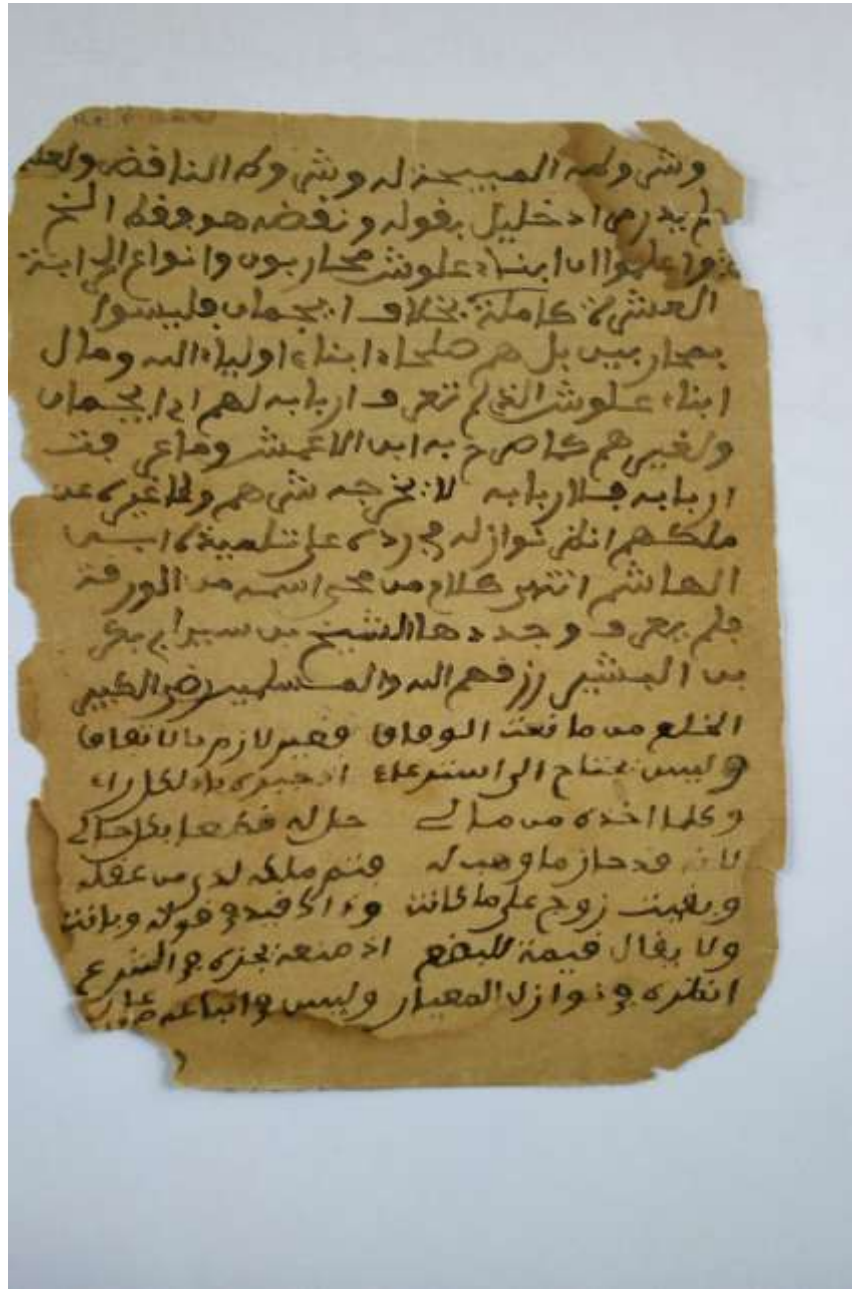 وشروطه المبيحة له وشروط الناقض ولعله
لم يدر مراد خليل بقوله ونقضه هو فقط الخ
واعلموا ان ابناء علوش محاربون وانواع الحرابة
العشرة كاملة بخلاف ايجمان فليسوا
بمحاربين بل هم صلحاء ابناء اولياء الله ومال
ابناء علوش الذي لم تعرف اربابه لهم اي ايجمان
ولغيرهم كما صرح به ابن الاعمش وما عرفت
اربابه فلاربابه لا يخرجه شرهم ولا غيره عن
ملكهم انظر نوازله مجردة على تلميذه ابن
الهاشم انتهى كلام من محي اسمه من الورقة
فلم يعرف وجددها الشيخ بن سيد ابي بكر
بن البشير رزقهم الله والمسلمين رضى الكبير
الخلع من مانعت الوفاق فغير لازم بالاتفاق
وليس يحتاج الى استرعاء اذ جبره باد لكل راء
وكلما اخذه من مالي حل له قطعا بكل حال
لانه قد حاز ما وهب له فتم ملكه لدى من عقله
وبقيت زوج على ما كانت وذاك قيد في قوله وبانت
ولا يقال قيمة للبضع اذ منعه يجزه في الشرع
انظره في نوازل المعيار وليس في اتباعه من عار